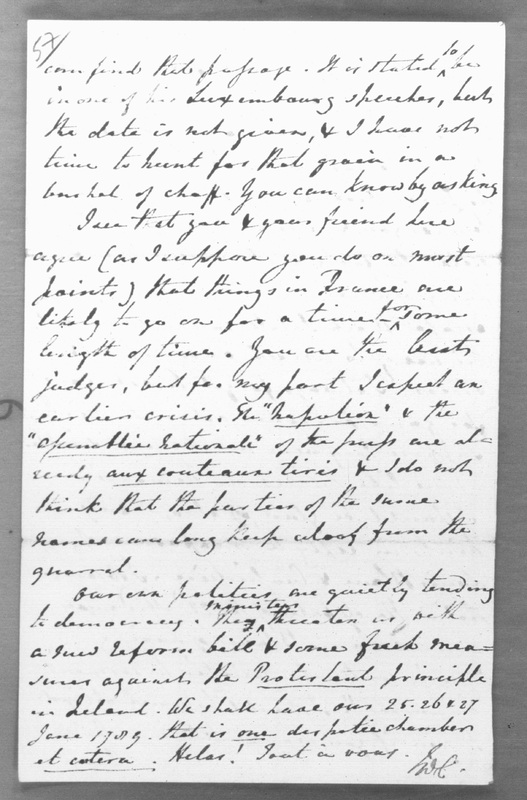 57/
can find that passage. It is stated to be
in one of his Luxembourg speeches, but
the date is not given, & I have not
time to hunt for that grain in a
bushel of chaff. You can know by asking
I see that you & your friend here
agree (as I suppose you do on most
points) that things in France are
likely to go on for a time & for some
length of time. You are the best
judges, but for my part I expect an
earlier crisis. The "Napoléon" & the
"Assemblée Nationale" of the press are al=
ready aux couteaux tirés & I do not
think that the parties of the same
names can long keep aloof from the
quarrel.
Our own politics are quietly tending
to democracy. The ministers threaten us with
a new reform bill & some fresh mea=
sures against the Protestant principle
in Ireland. We shall have our 25. 26 & 27
June 1789. that is one despotic chamber
et cætera. Helas! Tout à vous.